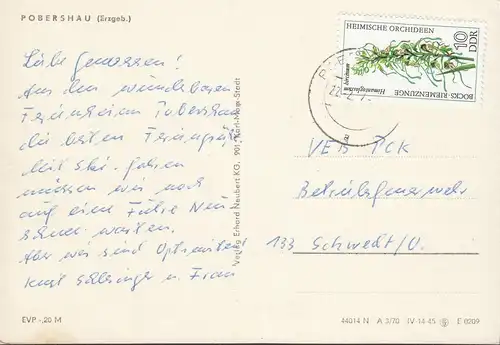 POBERSHAU (Erzgeb.)
Liebe Genossen!
Aus dem wunderbaren
Ferienheim Pobershau
die besten Feriengrüße
Mit Ski-fahren
müssen wir noch
auf eine Fuhre Neu
schnee warten.
Aber wir sind Optimisten
Kurt Schlesinger u. Frau
EVP -,20 M
Verlag Erhard Neubert KG, 901 Karl-Marx-Stadt
HEIMISCHE ORCHIDEEN
10
DDR
BOCKS-RIEMENZUNGE
Himantoglossum hircinum
a
VEB PCK
Betriebsfeuerwehr
133 Schwedt/O.
44014 N A 3/70 IV-14-45 E 6209